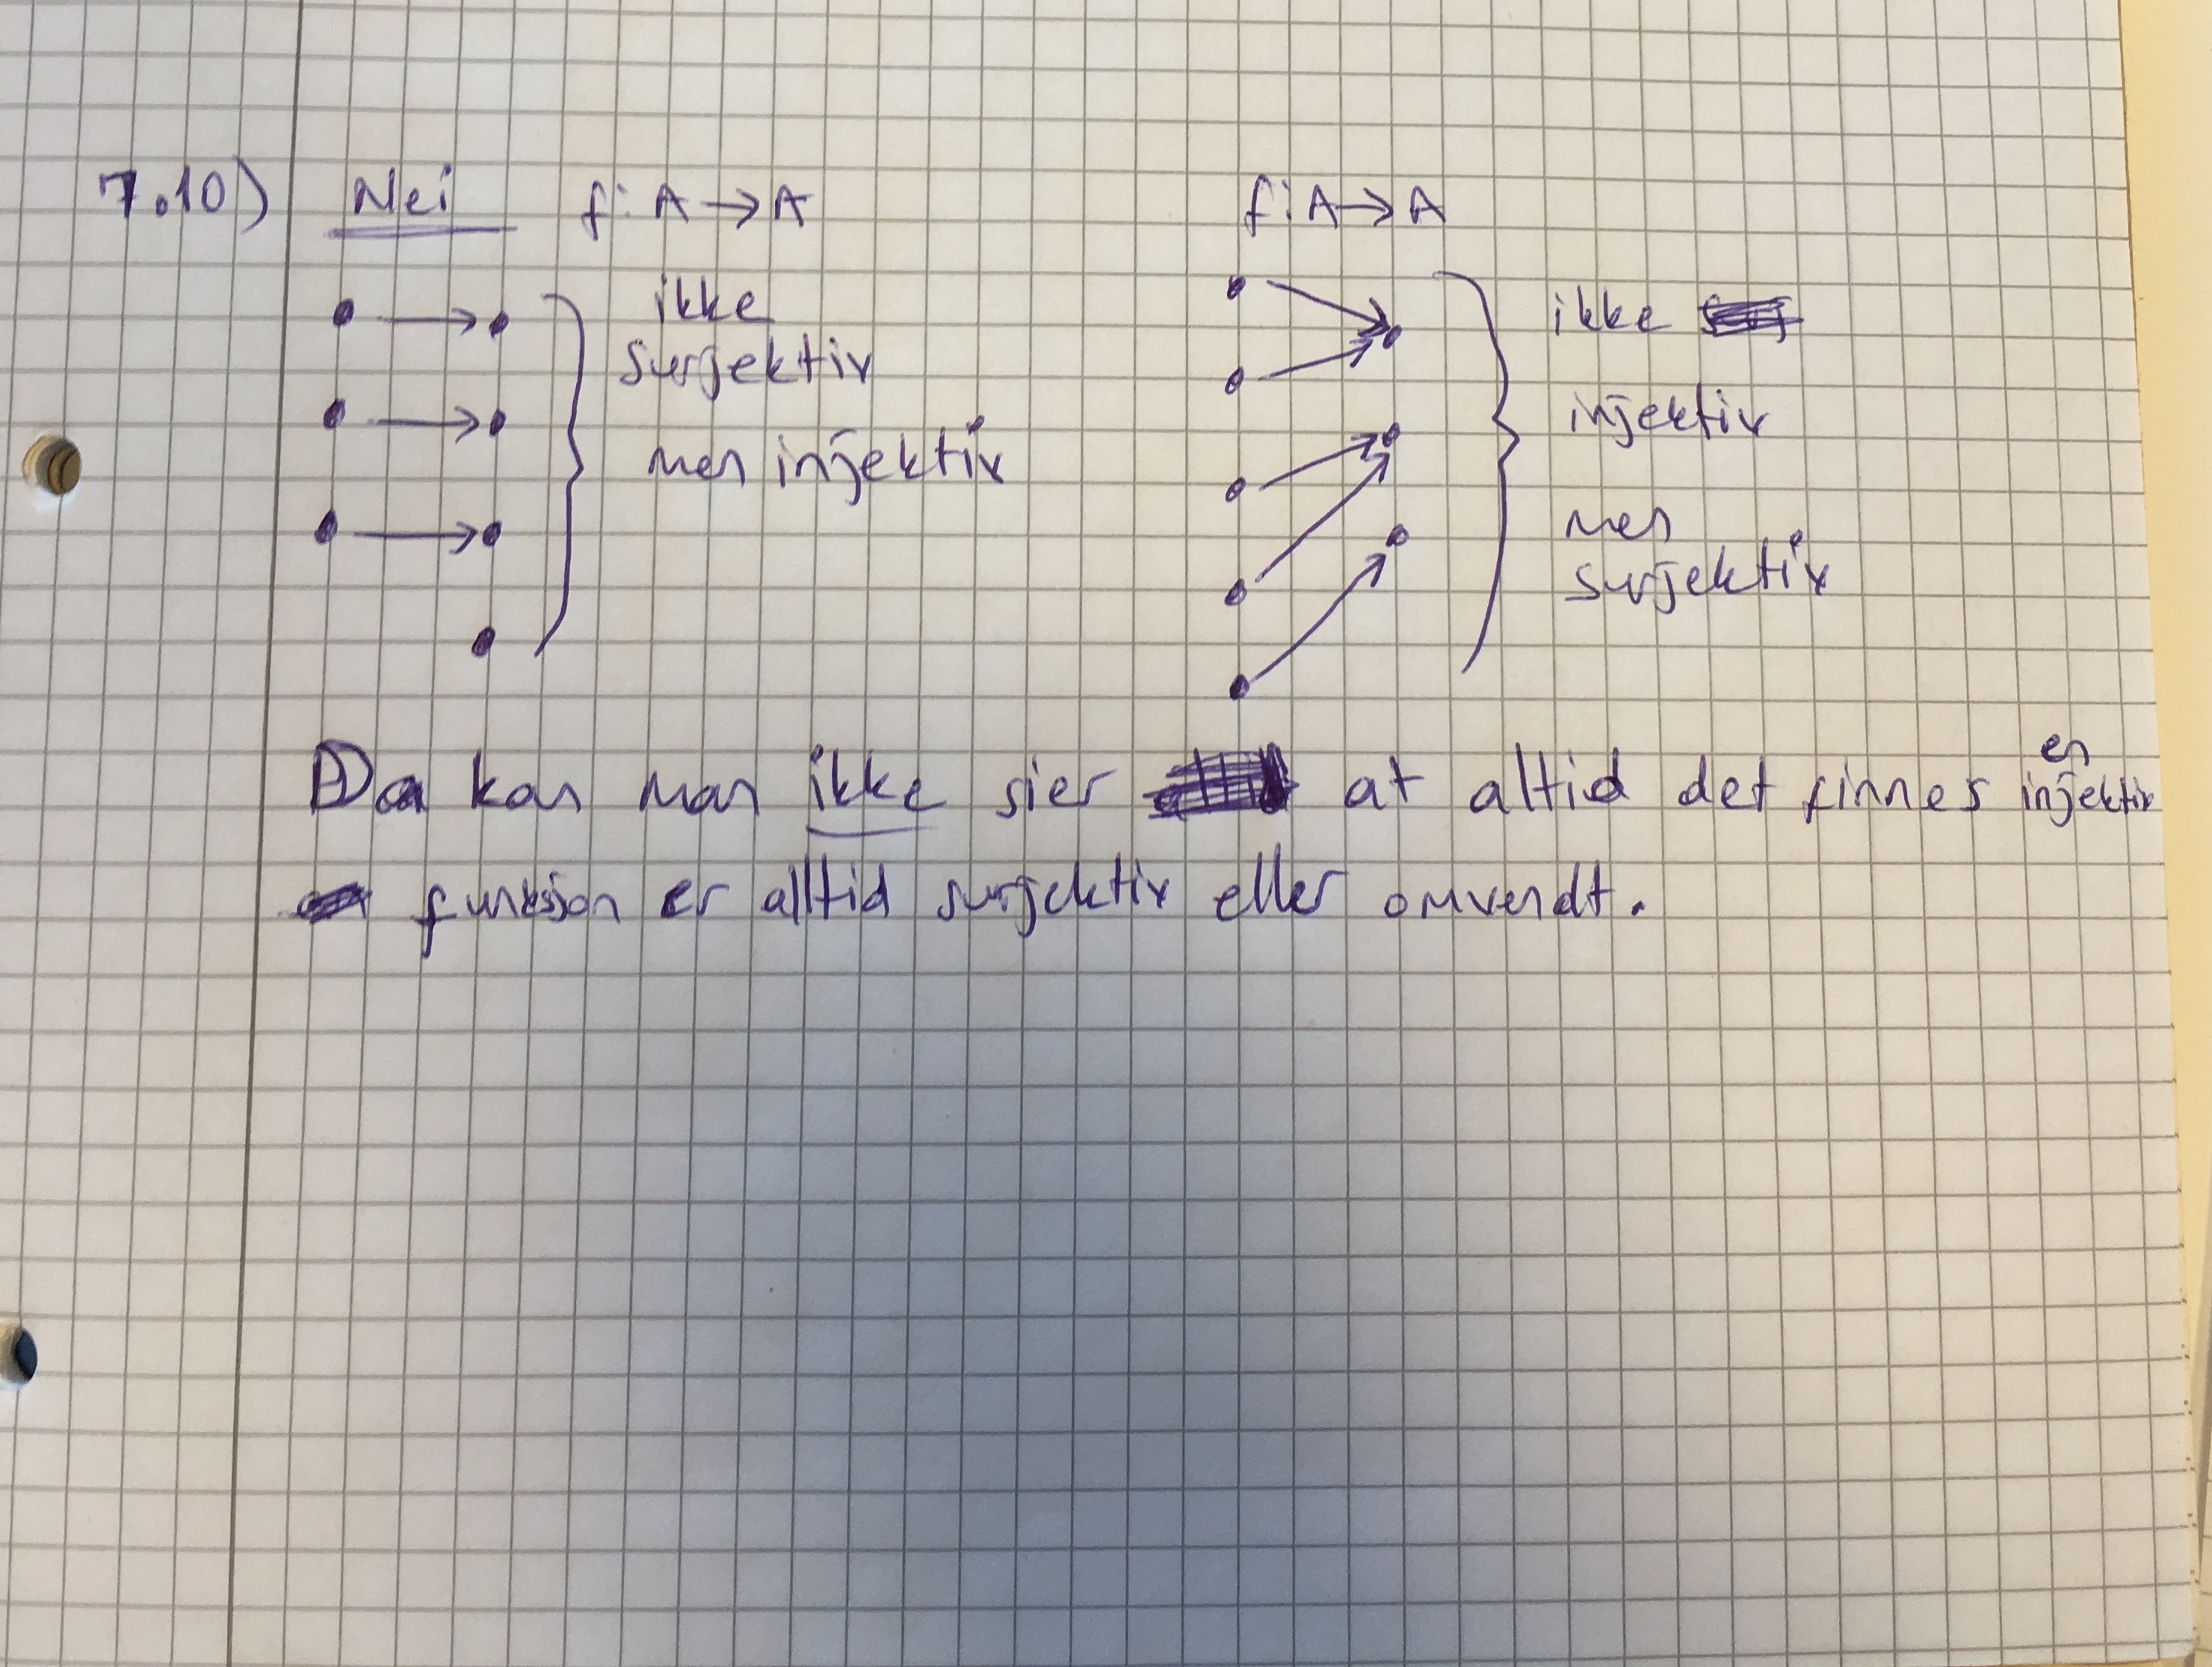 7.10) Nei f: A → A f: A → A
ikke
surjektiv
men injektiv
ikke
injektiv
men
surjektiv
Da kan man ikke sier at altid det finnes en injektiv
funksjon er alltid surjektiv eller omvendt.